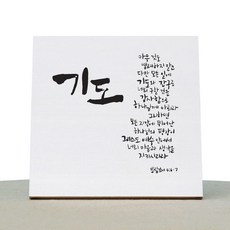 기도
아무 것도
염려하지 말고
다만 모든 일에
기도와 간구로
너희 구할 것을
감사함으로
하나님께 아뢰라
그리하면
모든 지각에 뛰어난
하나님의 평강이
그리스도 예수 안에서
너희 마음과 생각을
지키시리라
빌립보서 4:6-7